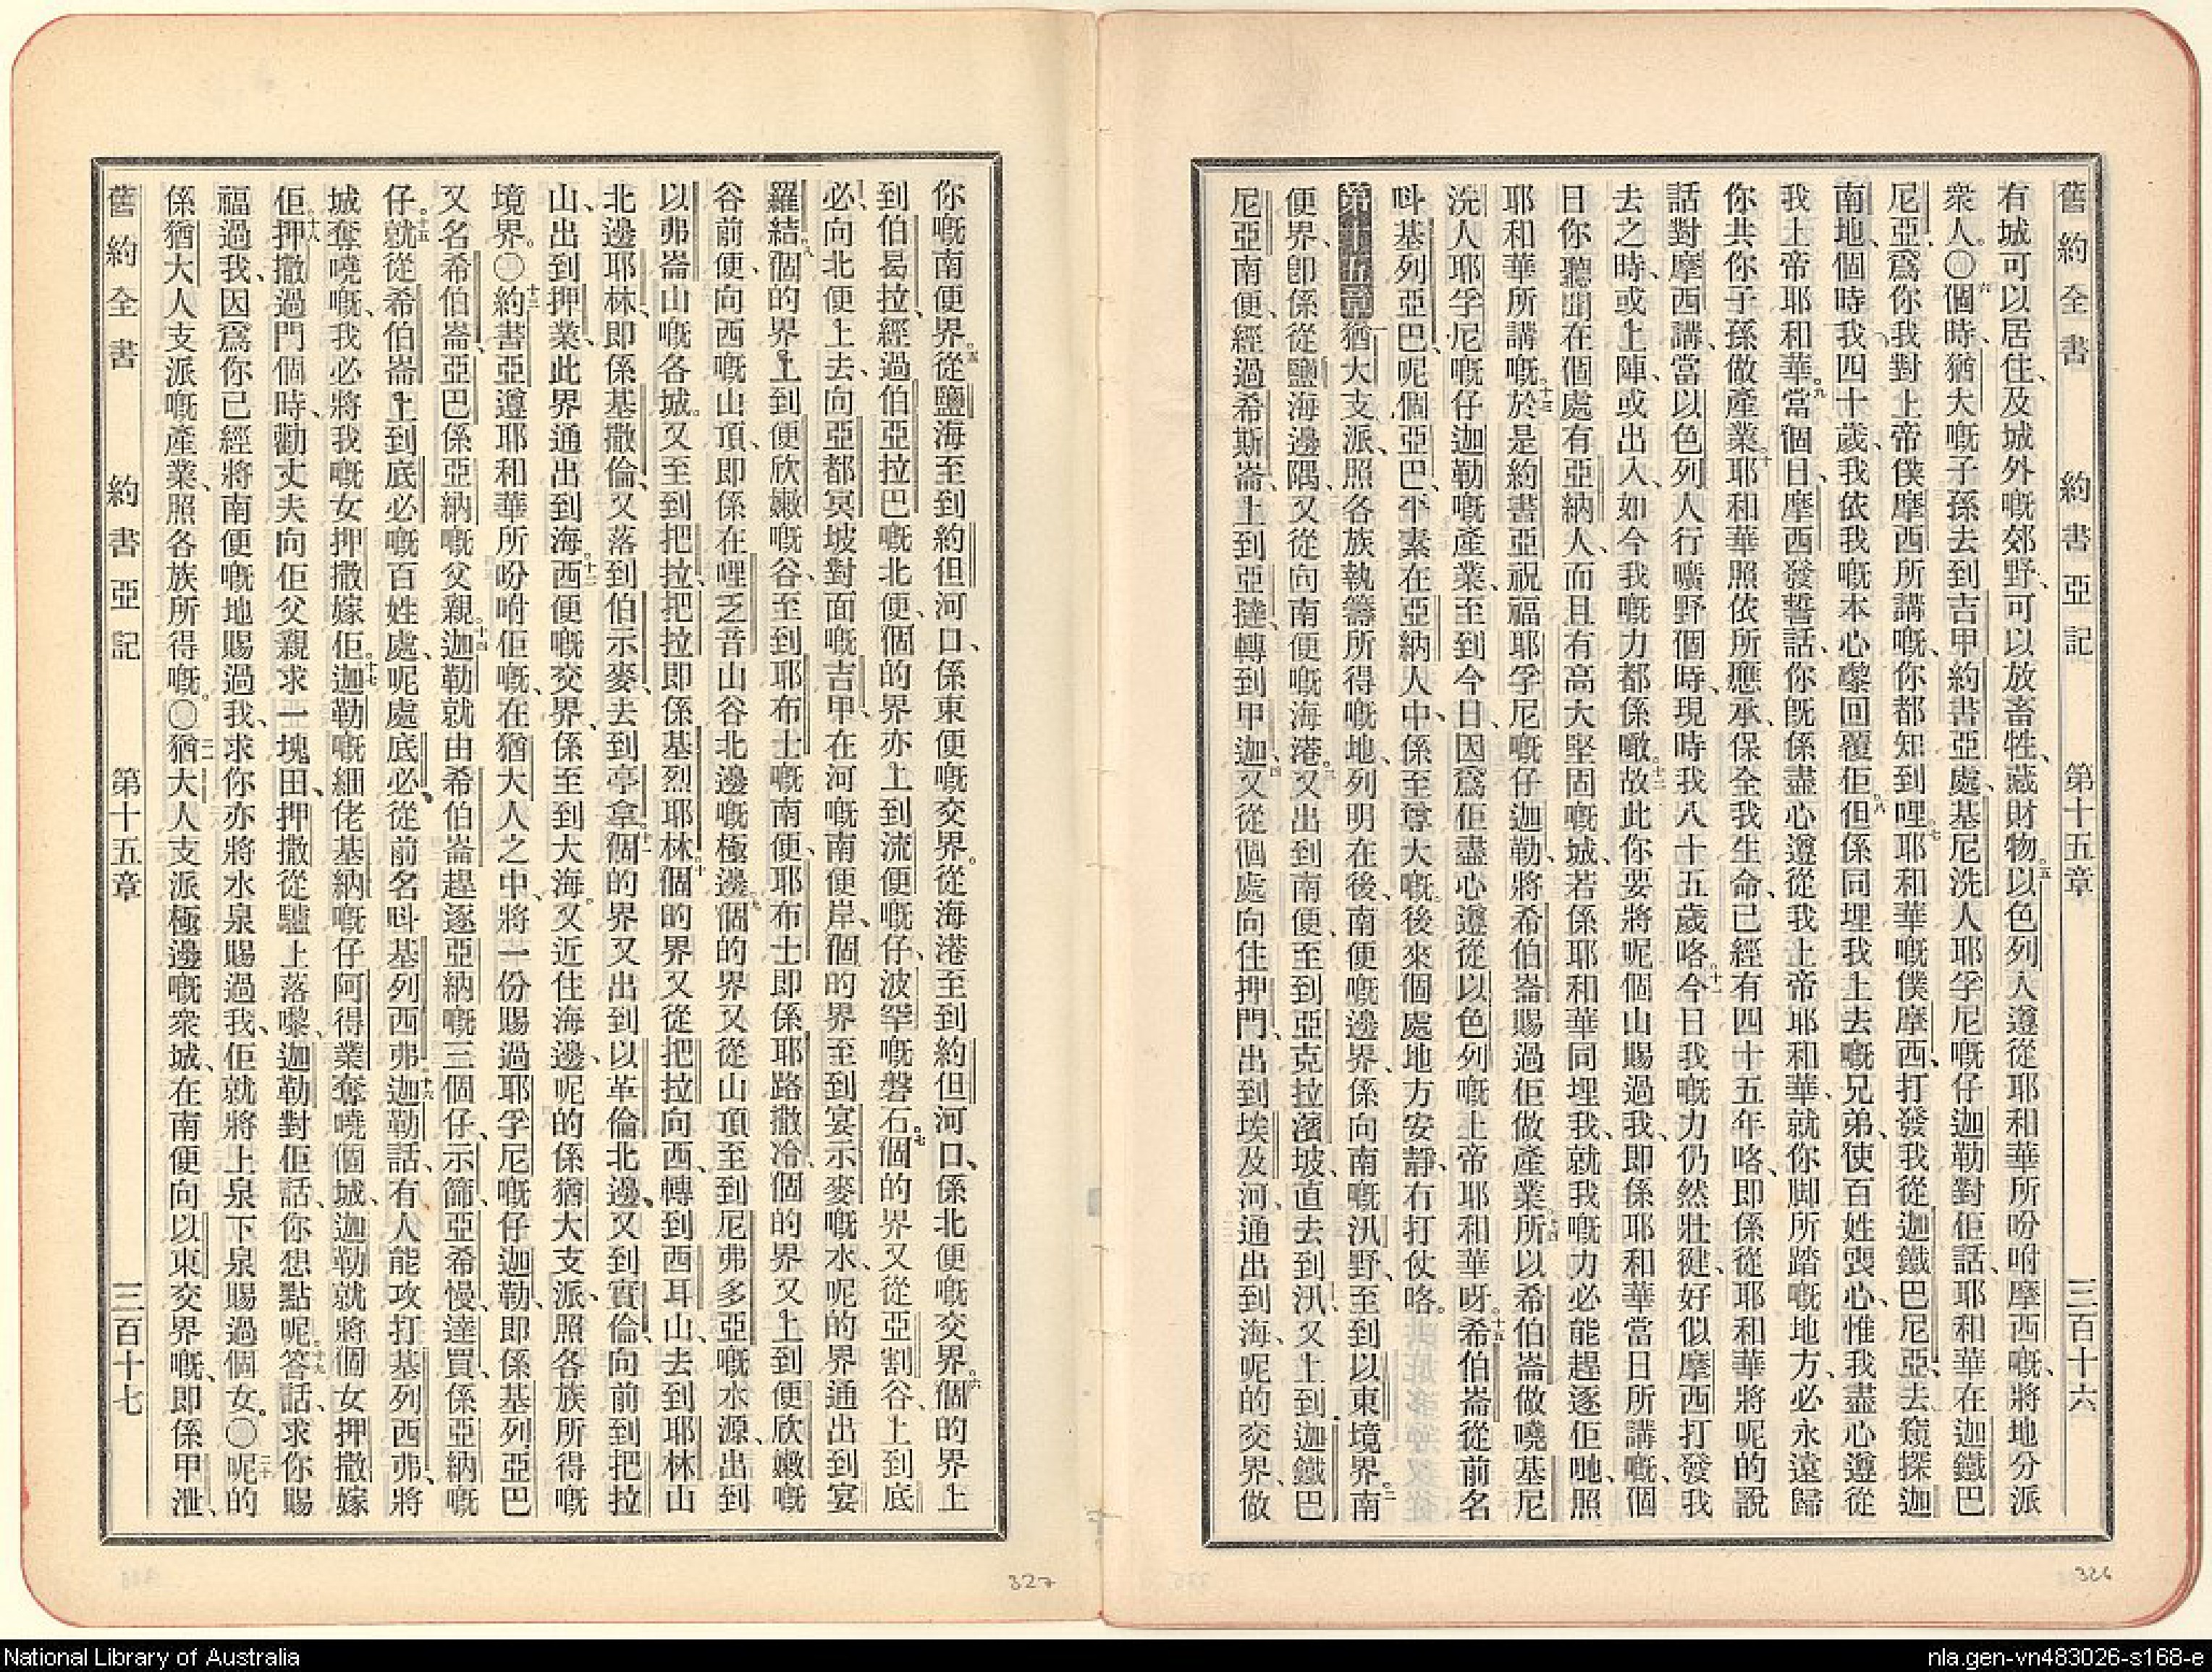 舊約全書 約書亞記 第十五章 三百十六
有城可以居住、及城外嘅郊野、可以放畜牲、藏財物。五以色列人遵從耶和華所吩咐摩西嘅、將地分派
衆人。〇六個時猶大嘅子孫去到吉甲約書亞處、基尼洗人耶孚尼嘅仔迦勒對佢話、耶和華在迦鐵巴
尼亞、爲你我對上帝僕摩西所講嘅、你都知到哩。七耶和華嘅僕摩西、打發我從迦鐵巴尼亞、去窺探迦
南地、個時我四十歲、我依我嘅本心嚟回覆佢。八但係同埋我上去嘅兄弟、使百姓喪心、惟我盡心遵從
我上帝耶和華。九當個日、摩西發誓話、你旣係盡心遵從我上帝耶和華、就你脚所踏嘅地方、必永遠歸
你共你子孫做產業。十耶和華照依所應承、保全我生命、已經有四十五年咯、卽係從耶和華將呢的說
話對摩西講、當以色列人行曠野個時、現時我八十五歲咯。十一今日我嘅力仍然壯健、好似摩西打發我
去之時、或上陣、或出入、如今我嘅力都係噉。十二故此你要將呢個山賜過我、卽係耶和華當日所講嘅、個
日你聽聞在個處有亞納人、而且有高大堅固嘅城、若係耶和華同埋我、就我嘅力必能趕逐佢哋、照
耶和華所講嘅。十三於是約書亞祝福耶孚尼嘅仔迦勒、將希伯崙賜過佢做產業。十四所以希伯崙做曉基尼
洗人耶孚尼嘅仔迦勒嘅產業、至到今日、因爲佢盡心遵從以色列嘅上帝耶和華呀。十五希伯崙從前名
呌基列亞巴、呢個亞巴、平素在亞納人中、係至尊大嘅。後來個處地方安靜、冇打仗咯。
第十五章 一猶大支派、照各族執籌所得嘅地、列明在後、南便嘅邊界、係向南嘅汛野、至到以東境界。二南
便界、卽係從鹽海邊隅、又從向南便嘅海港。三又出到南便、至到亞克拉濱坡、直去到汛、又上到迦鐵巴
尼亞南便、經過希斯崙、上到亞撻、轉到甲迦。四又從個處向住押門、出到埃及河、通出到海、呢的交界、做
你嘅南便界。五從鹽海至到約但河口、係東便嘅交界。從海港至到約但河口、係北便嘅交界。六個的界上
到伯曷拉、經過伯亞拉巴嘅北便、個的界亦上到流便嘅仔、波罕嘅磐石。七個的界又從亞割谷、上到底
必、向北便上去、向亞都冥坡對面嘅吉甲、在河嘅南便岸、個的界至到宴示麥嘅水、呢的界通出到宴
羅結。八個的界上到便欣嫩嘅谷、至到耶布士嘅南便、耶布士卽係耶路撒冷、個的界又上到便欣嫩嘅
谷前便、向西嘅山頂、卽係在哩乏音山谷北邊嘅極邊。九個的界又從山頂至到尼弗多亞嘅水源、出到
以弗崙山嘅各城。又至到把拉、把拉卽係基烈耶林。十個的界又從把拉向西、轉到西耳山、去到耶林山
北邊、耶林卽係基撒倫、又落到伯示麥、去到亭拿。十一個的界又出到以革倫北邊、又到實倫、向前到把拉
山、出到押業、此界通出到海。十二西便嘅交界、係至到大海。又近住海邊、呢的係猶大支派、照各族所得嘅
境界。〇十三約書亞遵耶和華所吩咐佢嘅、在猶大人之中、將一份賜過耶孚尼嘅仔迦勒、卽係基列亞巴
又名希伯崙、亞巴係亞納嘅父親。十四迦勒就由希伯崙趕逐亞納嘅三個仔、示篩、亞希慢、達買、係亞納嘅
仔。十五就從希伯崙上到底必嘅百姓處、呢處底必、從前名呌基列西弗。十六迦勒話、有人能攻打基列西弗、將
城奪曉嘅、我必將我嘅女押撒嫁佢。十七迦勒嘅細佬基納嘅仔阿得業奪曉個城、迦勒就將個女押撒嫁
佢。十八押撒過門個時、勸丈夫向佢父親求一塊田、押撒從驢上落嚟、迦勒對佢話、你想點呢。十九答話、求你賜
福過我、因爲你已經將南便嘅地賜過我、求你亦將水泉賜過我、佢就將上泉下泉賜過個女。〇二十呢的
係猶大人支派嘅產業、照各族所得嘅。〇二一猶大人支派極邊嘅衆城、在南便向以東交界嘅、卽係甲泄、
舊約全書 約書亞記 第十五章 三百十七
327
326
National Library of Australia
nla.gen-vn483026-s168-e